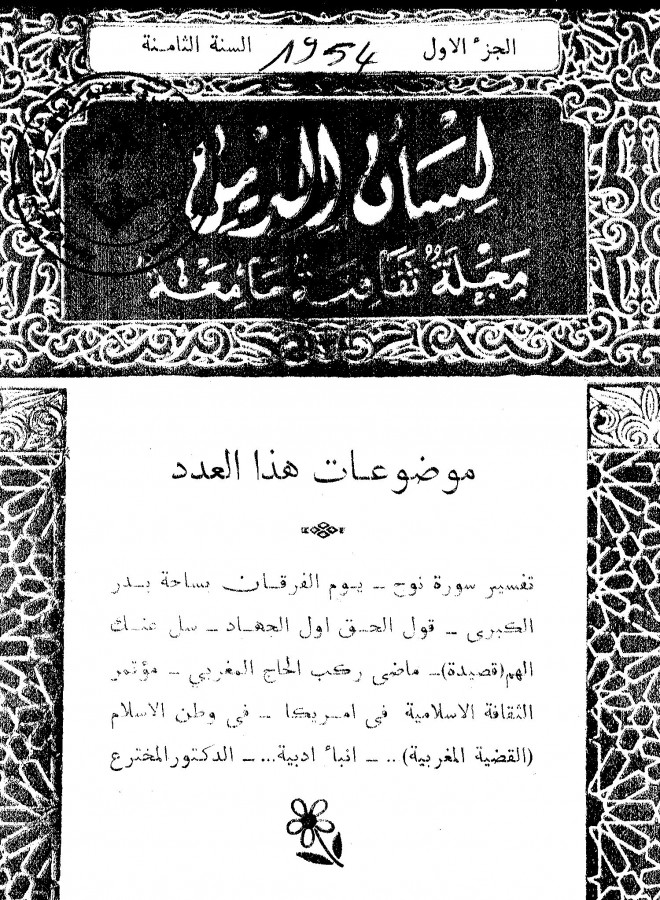 الجزء الاول 1954 السنة الثامنة
لسان الدين
مجلة ثقافية جامعة
موضوعات هذا العدد
تفسير سورة نوح – يوم الفرقان بساحة بدر
الكبرى – قول الحق اول الجهاد – سل عنك
الهم (قصيدة) – ماضى ركب الحاج المغربي – مؤتمر
الثقافة الاسلامية فى امريكا – فى وطن الاسلام
(القضية المغربية) .. – انباء ادبية ... – الدكتور المخترع